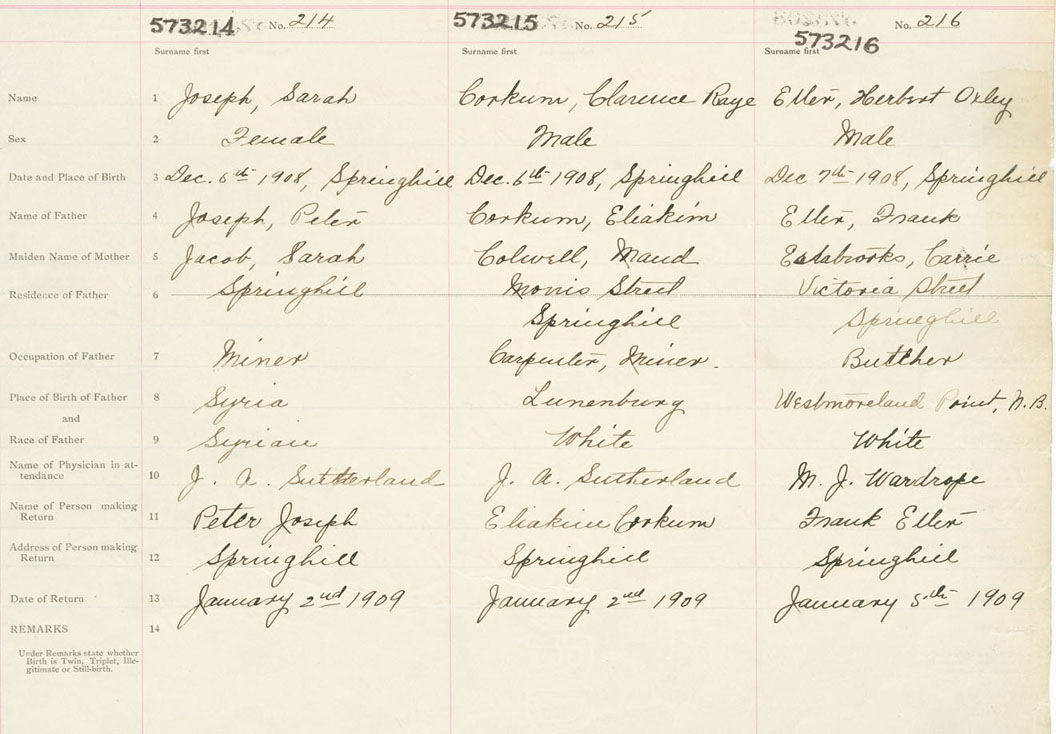 573214 No. 214 573215 No. 215 No. 216
573216
Surname first Surname first Surname first
Name 1 Joseph, Sarah Corkum, Clarence Raye Etter, Herbert Oxley
Sex 2 Female Male Male
Date and Place of Birth 3 Dec. 6th 1908, Springhill Dec. 6th 1908, Springhill Dec 7th 1908, Springhill
Name of Father 4 Joseph, Peter Corkum, Eliakim Etter, Frank
Maiden Name of Mother 5 Jacob, Sarah Colwell, Maud Estabrooks, Carrie
Residence of Father 6 Springhill Morris Street Victoria Street
Springhill Springhill
Occupation of Father 7 Miner Carpenter, Miner. Butcher
Place of Birth of Father 8 Syria Lunenburg Westmoreland Point, N.B.
and
Race of Father 9 Syrian White White
Name of Physician in at-
tendance 10 J. A. Sutherland J. A. Sutherland M. J. Wardrope
Name of Person making
Return 11 Peter Joseph Eliakim Corkum Frank Etter
Address of Person making
Return 12 Springhill Springhill Springhill
Date of Return 13 January 2nd 1909 January 2nd 1909 January 5th 1909
REMARKS 14
Under Remarks state whether
Birth is Twin, Triplet, Ille-
gitimate or Still-birth.